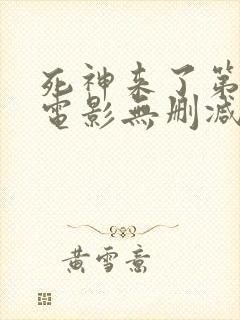 死神来了第
電影無刪减
黄雪意